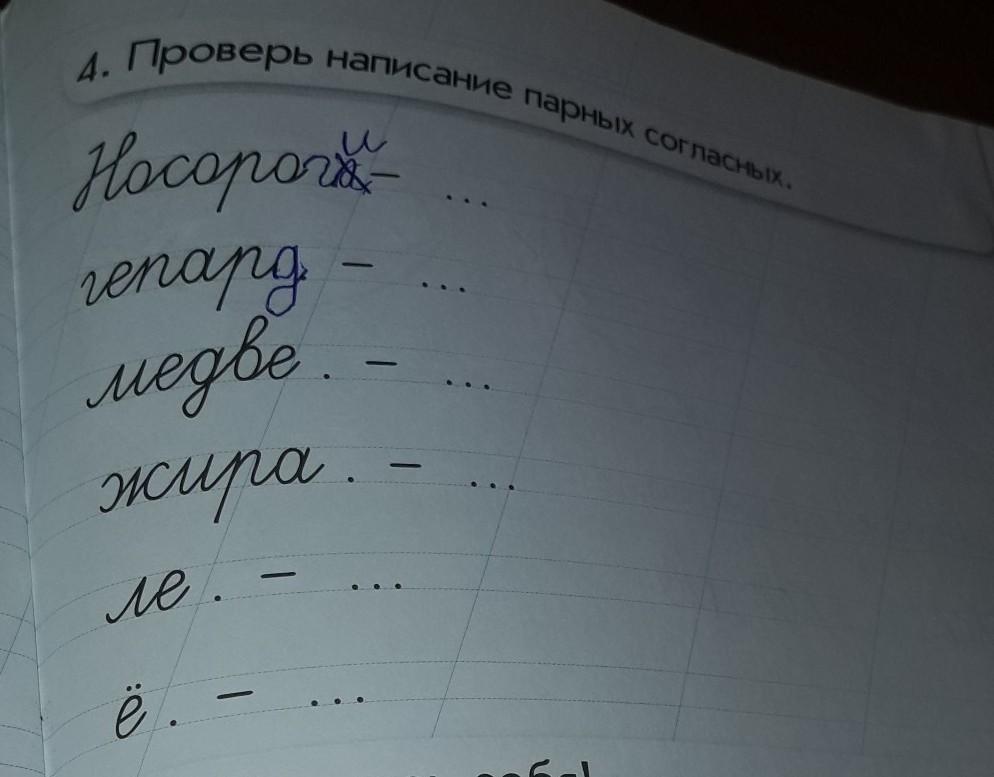 4. Проверь написание парных согласных.
Носороги – ...
гепард – ...
медве . – ...
жира . – ...
ле . – ...
ё . – ...